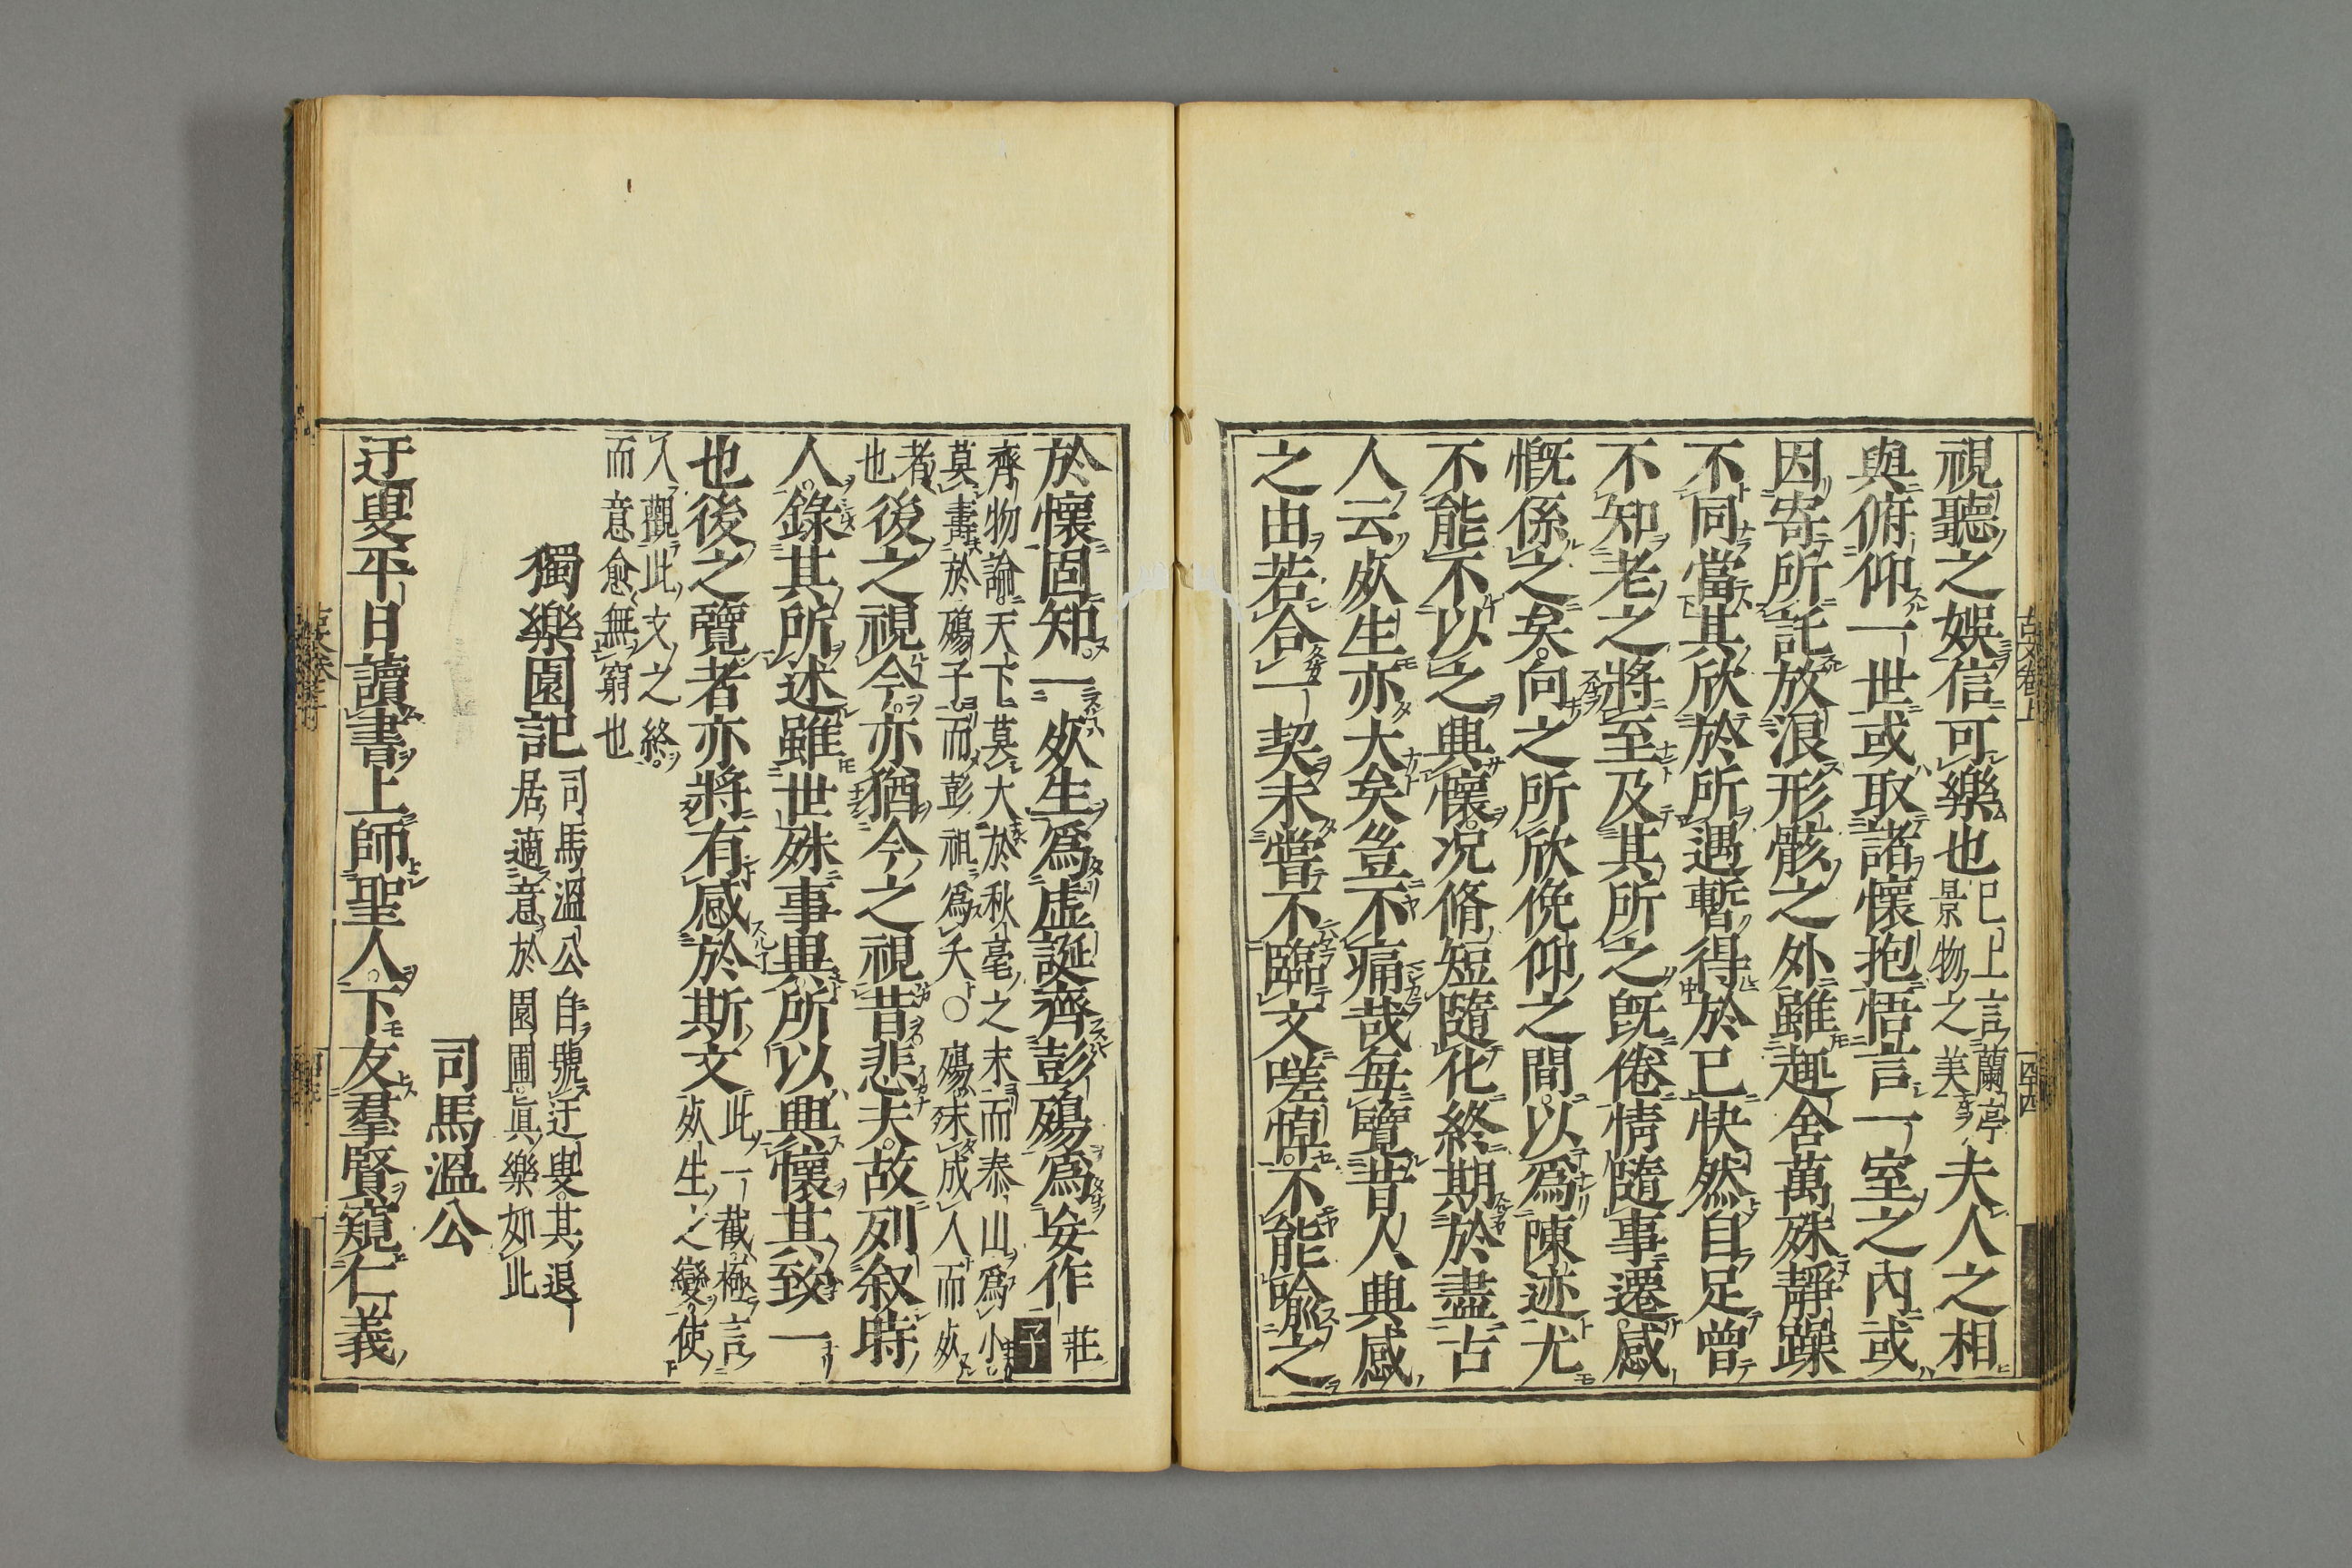 視聽之娛信可樂也已上言蘭亭景物之美夫人之相
與俯仰一世或取諸懷抱悟言一室之內或
因寄所託放浪形骸之外雖趣舍萬殊靜躁
不同當其欣於所遇暫得於已快然自足曾
不知老之將至及其所之既倦情隨事遷感
慨係之矣向之所欣俛仰之間以爲陳迹尤
不能不以之興懷况脩短隨化終期於盡古
人云死生亦大矣豈不痛哉每覽昔人興感
之由若合一契未嘗不臨文嗟悼不能喩之
於懷固知一死生爲虛誕齊彭殤爲妄作莊子
齊物論天下莫大於秋毫之末而泰山爲小
莫壽於殤子而彭祖爲夭○殤未成人而死
者也後之視今亦猶今之視昔悲夫故列叙時
人錄其所述雖世殊事異所以興懷其致一
也後之覽者亦將有感於斯文此一截極言死生之變使
人觀此文之終而意愈無窮也
獨樂園記司馬溫公自號迂叟其退居適意於園圃眞樂如此
司馬溫公
迂叟平日讀書上師聖人下友羣賢窺仁義